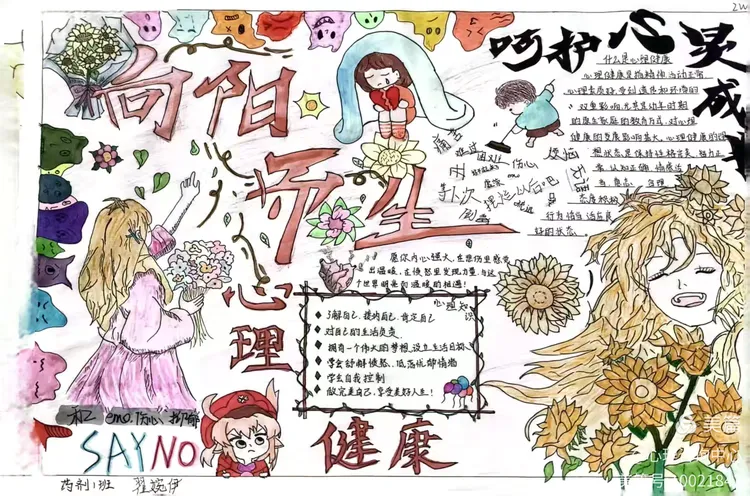 2W
向阳而生
呵护心灵
成
什么是心理健康
心理健康是指精神、活动正常、
心理素质好,受到遗传和环境的
双重影响,尤其其幼年时期
的原生家庭的教育方式,对心理
健康的发展影响甚大。心理健康的理
想状态是保持性格完美、智力正
常、认知正确、情感适
当、意志合理、
态度积极、
行为恰当、适应良
好的状态。
痛苦
难过
困难
伤心
烦恼
愿你内心强大,在悲伤里感受
出温暖,在愤怒里发现力量,与这
个世界明亮的温暖的相遇!
心理知识
了解自己、接纳自己、肯定自己
对自己的生活负责
拥有一个伟大的梦想,设立生活目标
学会舒解愤怒、低落忧郁情绪
学会自我控制
做完美自己,享受美好人生!
心理
健康
和 emo、伤心、抑郁
SAY NO
药剂1班
美篇